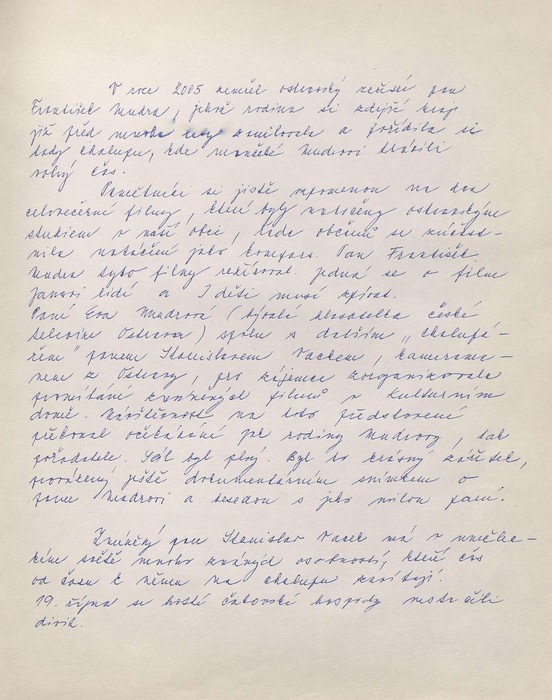 V roce 2005 zemřel ostravský režisér pan
František Mudra, jehož rodina si zdejší kraj
již před mnoha lety zamilovala a pořídila si
tady chalupu, kde manželé Mudrovi trávili
volný čas.
Pamětníci si jistě vzpomenou na dva
celovečerní filmy, které byly natáčeny ostravským
studiem v naší obci, kde občané se zúčast-
nila natáčení jako kompars. Pan František
Mudra tyto filmy režíroval. Jedná se o film
Jamovi lidé a I děti musí zpívat.
Paní Eva Mudrová (bývalá hlasatelka české
televize Ostrava) spolu s dalším „chalupá-
řem" panem Stanislavem Vackem, kamerama-
nem z Ostravy, pro zájemce zorganizovala
promítání zmíněných filmů v kulturním
domě. Návštěvnost na toto představení
překonal očekávání jak rodiny Mudrovy, tak
pořadatele. Sál byl plný. Byl to krásný zážitek,
provázený ještě dokumentárním snímkem o
panu Mudrovi a besedou s jeho milou paní.
Zmíněný pan Stanislav Vacek má v umělec-
kém světě mnoho známých osobností, které čas
od času k němu na chalupu zavítají.
19. října se hosté čakovské hospody nestačili
divit.